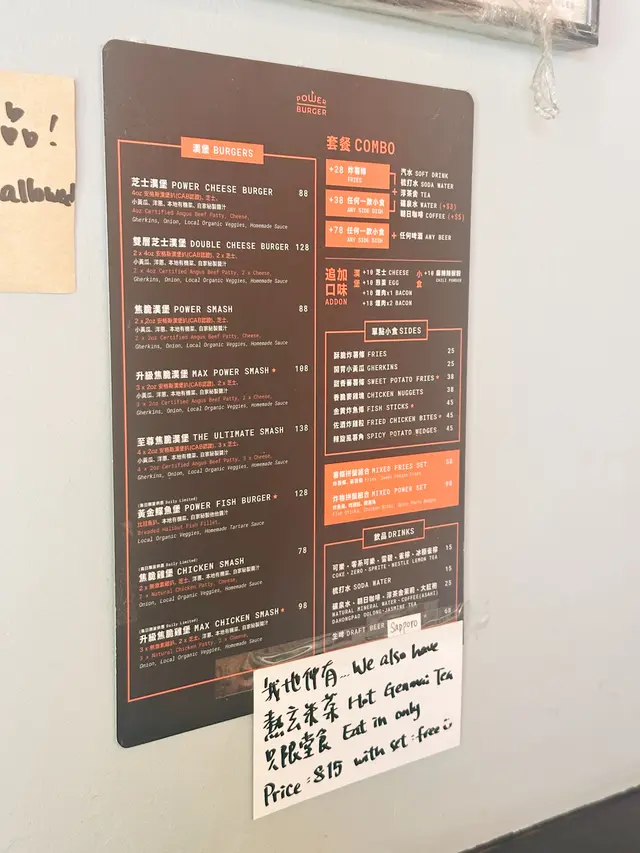 品!
allowed
POWER
BURGER
漢堡 BURGERS
芝士漢堡 POWER CHEESE BURGER 88
4oz 安格斯漢堡扒(CAB認證), 芝士,
小黃瓜, 洋蔥, 本地有機菜, 自家秘製醬汁
4oz Certified Angus Beef Patty, Cheese,
Gherkins, Onion, Local Organic Veggies, Homemade Sauce
雙層芝士漢堡 DOUBLE CHEESE BURGER 128
2 x 4oz 安格斯漢堡扒(CAB認證), 2 x 芝士,
小黃瓜, 洋蔥, 本地有機菜, 自家秘製醬汁
2 x 4oz Certified Angus Beef Patty, 2 x Cheese,
Gherkins, Onion, Local Organic Veggies, Homemade Sauce
焦脆漢堡 POWER SMASH 88
2 x 2oz 安格斯漢堡扒(CAB認證), 芝士,
小黃瓜, 洋蔥, 本地有機菜, 自家秘製醬汁
2 x 2oz Certified Angus Beef Patty, Cheese,
Gherkins, Onion, Local Organic Veggies, Homemade Sauce
升級焦脆漢堡 MAX POWER SMASH 108
3 x 2oz 安格斯漢堡扒(CAB認證), 2 x 芝士,
小黃瓜, 洋蔥, 本地有機菜, 自家秘製醬汁
3 x 2oz Certified Angus Beef Patty, 2 x Cheese,
Gherkins, Onion, Local Organic Veggies, Homemade Sauce
至尊焦脆漢堡 THE ULTIMATE SMASH 138
4 x 2oz 安格斯漢堡扒(CAB認證), 3 x 芝士,
小黃瓜, 洋蔥, 本地有機菜, 自家秘製醬汁
4 x 2oz Certified Angus Beef Patty, 3 x Cheese,
Gherkins, Onion, Local Organic Veggies, Homemade Sauce
(每日限量供應 Daily Limited)
黃金鰈魚堡 POWER FISH BURGER 128
比目魚扒, 本地有機菜, 自家秘製他他醬汁
Breaded Halibut Fish Fillet,
Local Organic Veggies, Homemade Tartare Sauce
(每日限量供應 Daily Limited)
焦脆雞堡 CHICKEN SMASH 78
2 x 無激素雞扒, 芝士, 洋蔥, 本地有機菜, 自家秘製醬汁
2 x Natural Chicken Patty, Cheese,
Onion, Local Organic Veggies, Homemade Sauce
(每日限量供應 Daily Limited)
升級焦脆雞堡 MAX CHICKEN SMASH 98
3 x 無激素雞扒, 2 x 芝士, 洋蔥, 本地有機菜, 自家秘製醬汁
3 x Natural Chicken Patty, 2 x Cheese,
Onion, Local Organic Veggies, Homemade Sauce
套餐 COMBO
+28 炸薯條
FRIES
+38 任何一款小食
ANY SIDE DISH
+ 汽水 SOFT DRINK
梳打水 SODA WATER
洋茶舍 TEA
礦泉水 WATER (+$3)
朝日咖啡 COFFEE (+$5)
+78 任何一款小食
ANY SIDE DISH
+ 任何啤酒 ANY BEER
追加口味 ADDON
漢堡
+10 芝士 CHEESE
+10 煎蛋 EGG
+10 煙肉x1 BACON
+18 煙肉x2 BACON
小食
+10 麻辣辣椒粉
CHILI POWDER
單點小食 SIDES
酥脆炸薯條 FRIES 25
開胃小黃瓜 GHERKINS 25
甜香蕃薯條 SWEET POTATO FRIES 38
香脆麥雞塊 CHICKEN NUGGETS 38
金黃炸魚條 FISH STICKS 45
佐酒炸雞粒 FRIED CHICKEN BITES 45
辣旋風薯角 SPICY POTATO WEDGES 45
薯條拼盤組合 MIXED FRIES SET 58
炸物拼盤組合 MIXED POWER SET 98
飲品 DRINKS
可樂、零系可能、雪碧、雀檬、冰極雀檬 15
COKE・ZERO・SPRITE・NESTLE LEMON TEA
梳打水 SODA WATER 15
礦泉水、朝日咖啡、洋茶舍茉莉、大紅袍 25
NATURAL MINERAL WATER・COFFEE(ASAHI)
DAHONGPAO OOLONG・JASMINE TEA
生啤 DRAFT BEER Sapporo 68
我地仲有... We also have
熱玄米茶 Hot Genmai Tea
只限堂食 Eat in only
Price: $15 with set: free